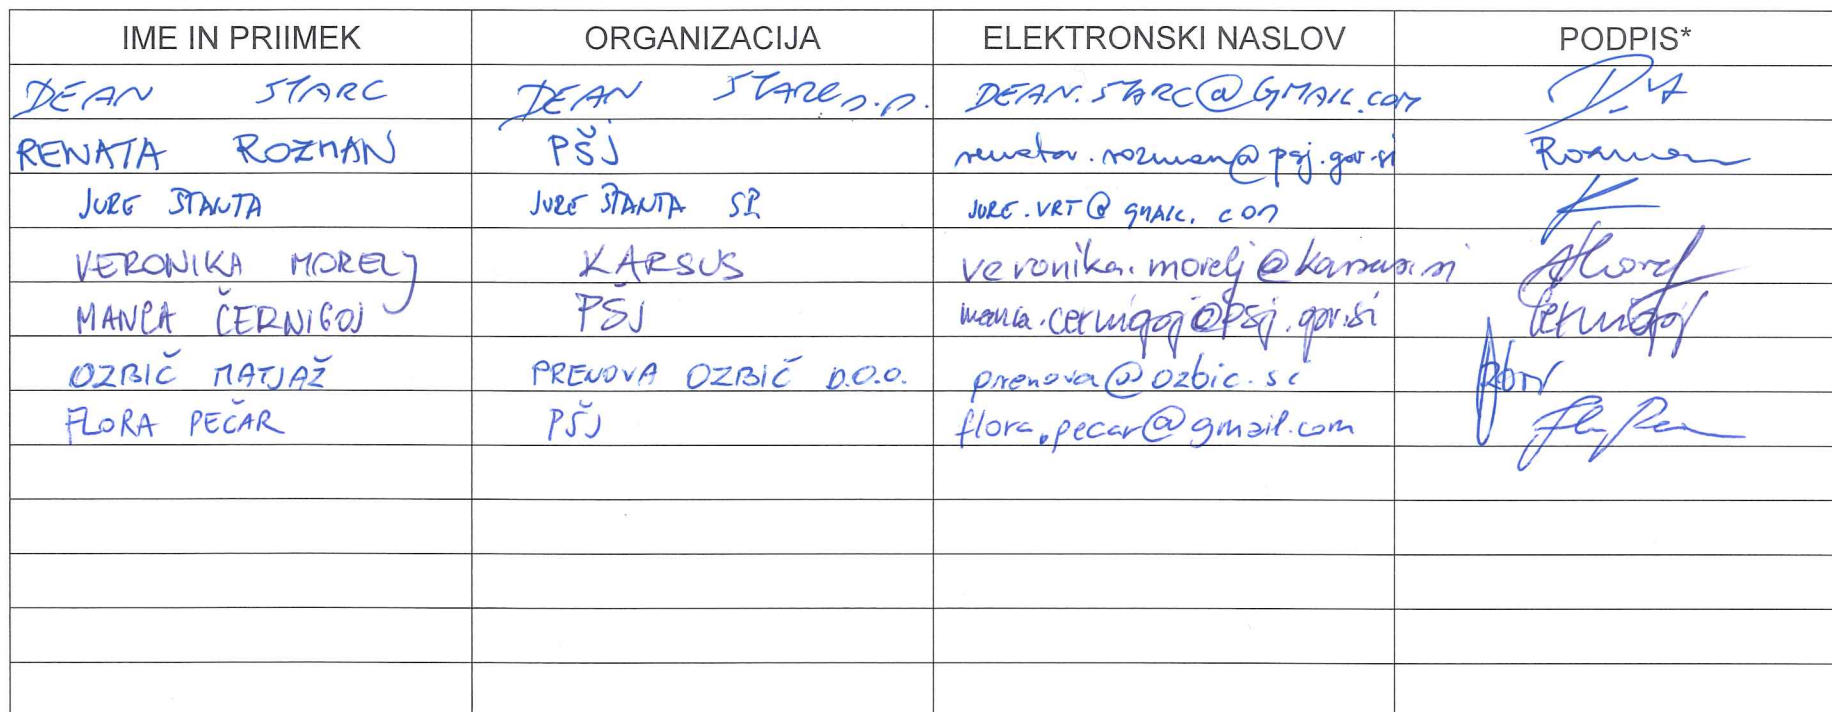 IME IN PRIIMEK ORGANIZACIJA ELEKTRONSKI NASLOV PODPIS*
DEAN STARC DEAN STARC s.p. DEAN.STARC@GMAIL.COM
RENATA ROZMAN PŠJ renata.rozman@psj.gov.si Rozman
JURE ŠTANTA JURE ŠTANTA SP. JURE.VRT@GMAIL.COM
VERONIKA MORELJ KARSUS veronika.morelj@karsus.si
MANCA ČERNIGOJ PŠJ manca.cernigoj@psj.gov.si Černigoj
OZBIČ MATJAŽ PRENOVA OZBIČ D.O.O. prenova@ozbic.si
FLORA PEČAR PŠJ flora.pecar@gmail.com